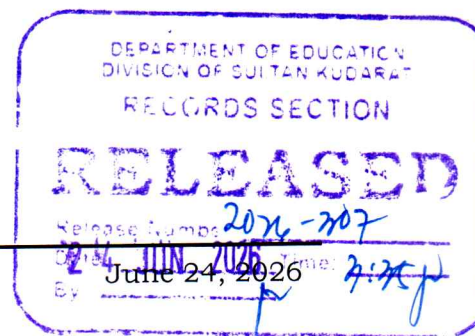 DEPARTMENT OF EDUCATION
DIVISION OF SULTAN KUDARAT
RECORDS SECTION
RELEASED
Release Number
24 JUN 2026 Time:
June 24, 2026
By